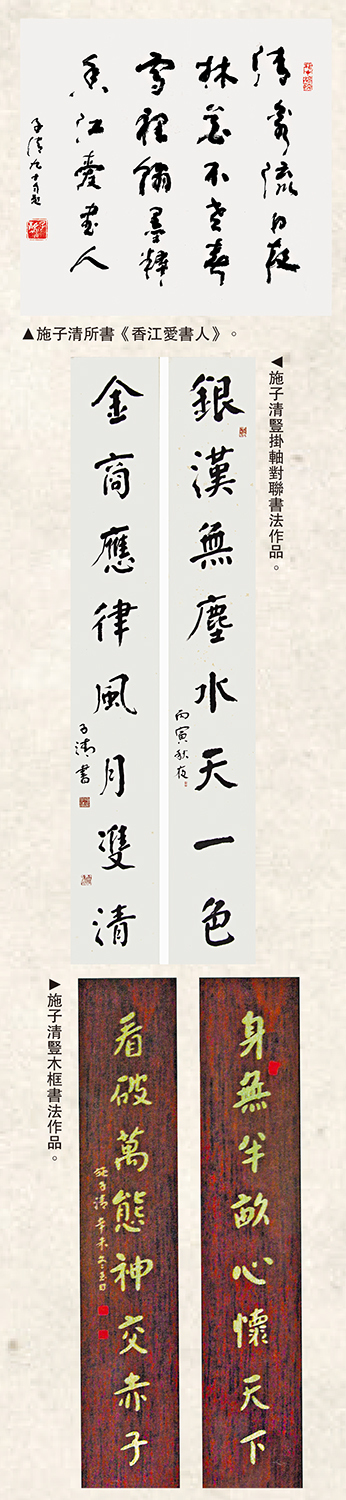 清流日夜
林不老春
雪裡墨
香江愛書人
子清
▲施子清所書《香江愛書人》。
◀施子清豎掛軸對聯書法作品。
銀漢無塵水天一色
丙寅秋夜
金商應律風月雙清
子清書
▶施子清豎木框書法作品。
身無半畝心懷天下
看破萬態神交赤子
施子清辛未冬至日